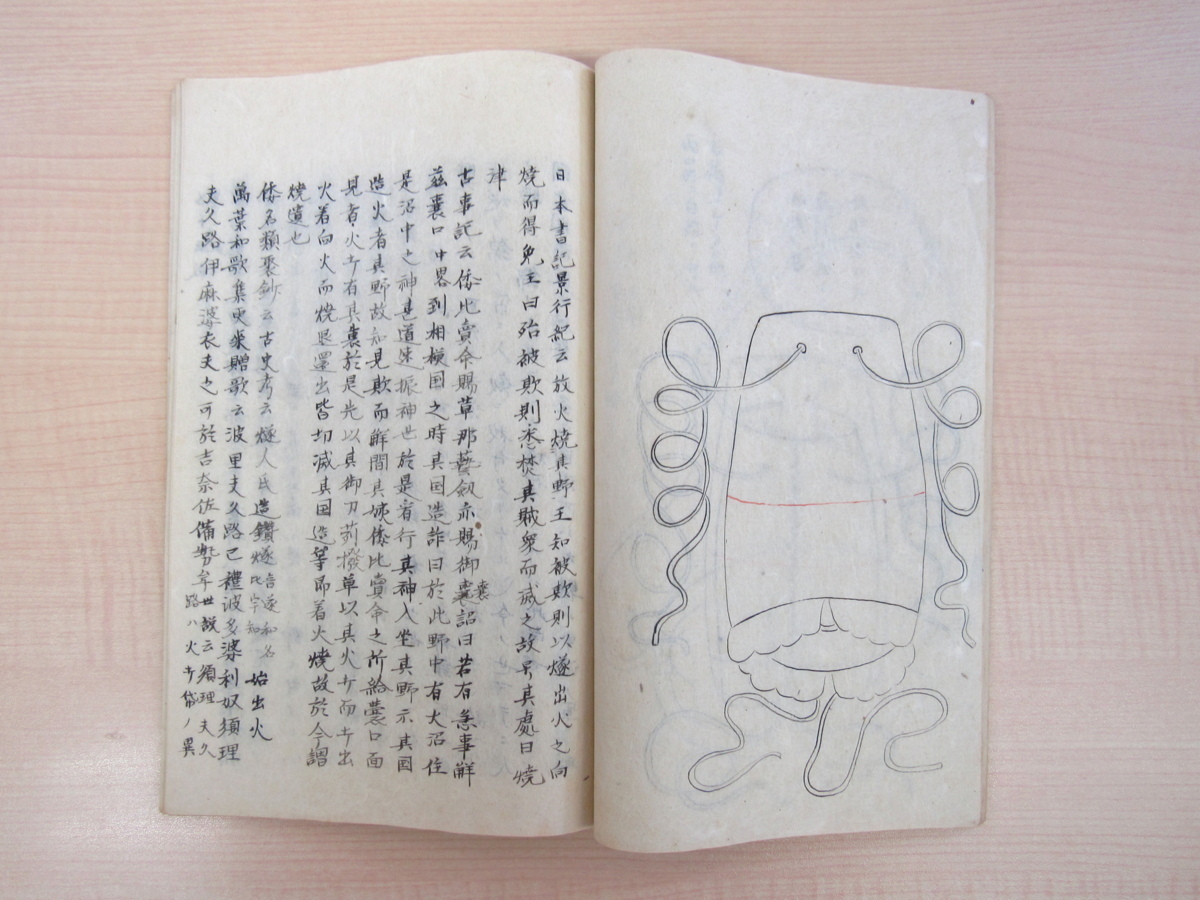 日本書記景行紀云放火燒其野王知被欺則以燧出火之向
燒而得免王曰殆被欺則悉焚其賊衆而滅之故号其處曰燒
津
古事記云倭比賣命賜草那藝釼亦賜御囊詔曰若有急事解
茲囊口中畧到相模国之時其国造詐曰於此野中有大沼住
是沼中之神甚道速振神也於是看行其神入坐其野尓其国
造火着其野故知見欺而解開其姨倭比賣命之所給囊口而
見者火打有其裏於是先以其御刀苅撥草以其火打而打出
火着向火而燒退還出皆切滅其国造等即着火燒故於今謂
燒遺也
倭名類聚鈔云古史考云燧人氏造鑽燧 始出火
萬葉和歌集 贈歌云波里夫久路己禮波多婆利奴須理
夫久路伊麻婆衣天之可於吉奈佐備勢牟 世故云須理夫久
路ハ火打袋ノ異